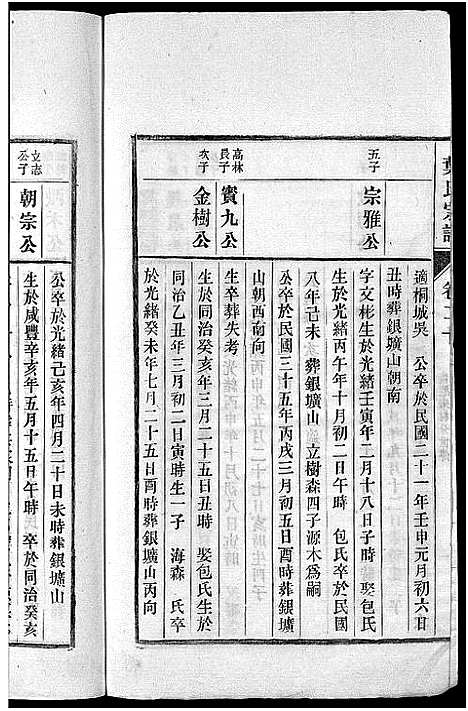 葉氏宗譜
卷二十
適桐城吳　公卒於民國二十一年壬申元月初六日
丑時葬銀壙山朝南
五子
宗雅公
字文彬生於光緒壬寅年二月十八日子時　娶包氏
生於光緒丙午年十月初二日午時　包氏卒於民國
八年己未　葬銀壙山　立樹森四子源木為嗣
公卒於民國三十五年丙戌三月初五日酉時葬銀壙
山朝西南向
高林長子
賓九公
生卒葬失考
次子
金樹公
生於同治癸亥年三月二十五日丑時　娶包氏生於
同治乙丑年三月初二日寅時生一子　海森　氏卒
於光緒癸未年七月二十五日酉時葬銀壙山丙向
公卒於光緒己亥年四月二十日未時葬銀壙山
立志公子
朝宗公
生於咸豐辛亥年五月十五日午時　卒於同治癸亥